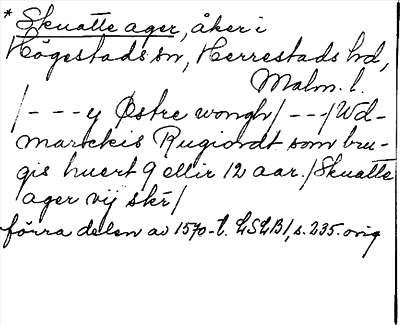 * Skuatte ager, åker i
Högestads sn, Herrestads hd,
Malm. l.
/ - - - y Østre wongh / - - - / Wd-
marckis Rugiordt som bru-
gis huert 9 ellir 12 aar. / Skuatte
ager vij skr /
förra delen av 1570-t. LSLB1, s. 235. orig